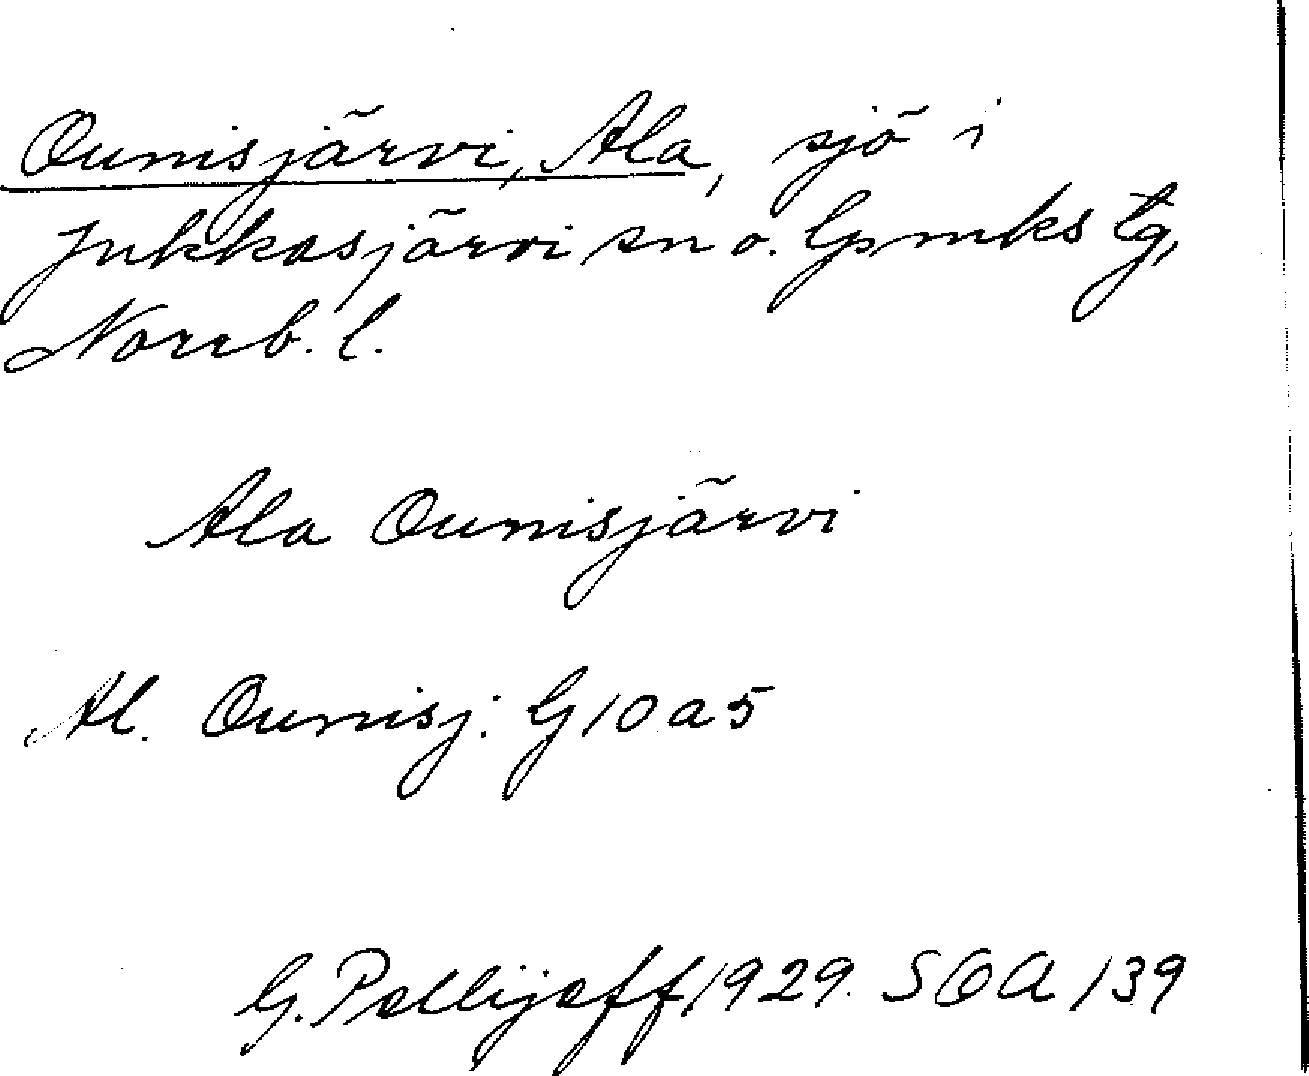 Ounisjärvi, Ala, sjö i
Jukkasjärvi sn o. Lpmks tg,
Norrb. l.
Ala Ounisjärvi
Al. Ounisj: G10a5
G. Pellijeff 1929. SOA 139